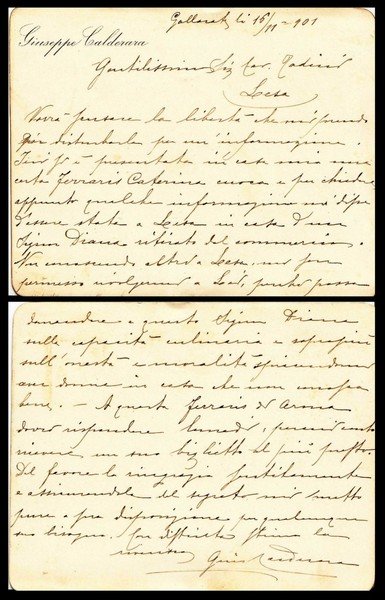 Gallarate li 16/11-901
Giuseppe Calderara
Gentilissimo Sig Cav.
Lesa
Vorrà scusare la libertà che mi prendo
per disturbarla per un'informazione.
si è presentata in casa mia una
certa Ferraris Caterina cuoca e per chiedere
appunto qualche informazione mi disse
d'essere stata a Lesa in casa d'un
Signor Diana ritirato dal commercio.
Non conoscendo altro a Lesa, mi son
permesso rivolgermi a Lei, perchè possa
domandare a questo Signor Diana
sulla capacità culinaria e
sull'onestà e moralità
donne in casa che non
bene. - A questa Ferraris di Arona
dovrei rispondere lunedì, perciò
ricevere un suo biglietto al più presto.
Del favore la ringrazio sentitamente
e assicurandola del segreto mi metto
pure a sua disposizione per qualunque
suo bisogno. Con distinta stima la
Calderara